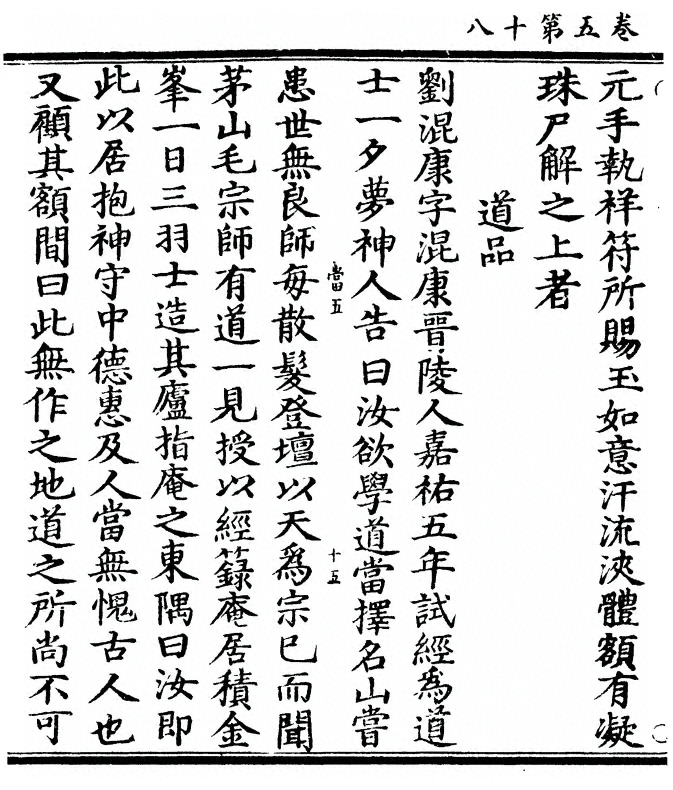 卷五第十八
元手執祥符所賜玉如意汗流浹體額有凝
珠尸解之上者
道品
劉混康字混康晉陵人嘉祐五年試經爲道
士一夕夢神人告曰汝欲學道當擇名山嘗
當五
十五
患世無良師每散髮登壇以天爲宗已而聞
茅山毛宗師有道一見授以經籙庵居積金
峯一日三羽士造其廬指庵之東隅曰汝即
此以居抱神守中德惠及人當無愧古人也
又顧其額間曰此無作之地道之所尚不可